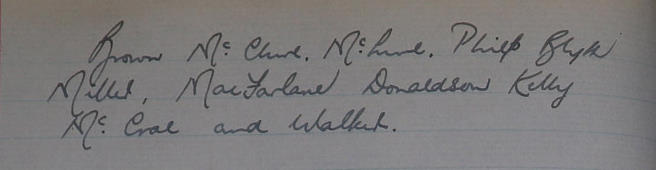 Brown Mc Clure. Mc Lure. Philp Blyth
Miller, MacFarlane Donaldson Kelly
Mc Crae and Walker.